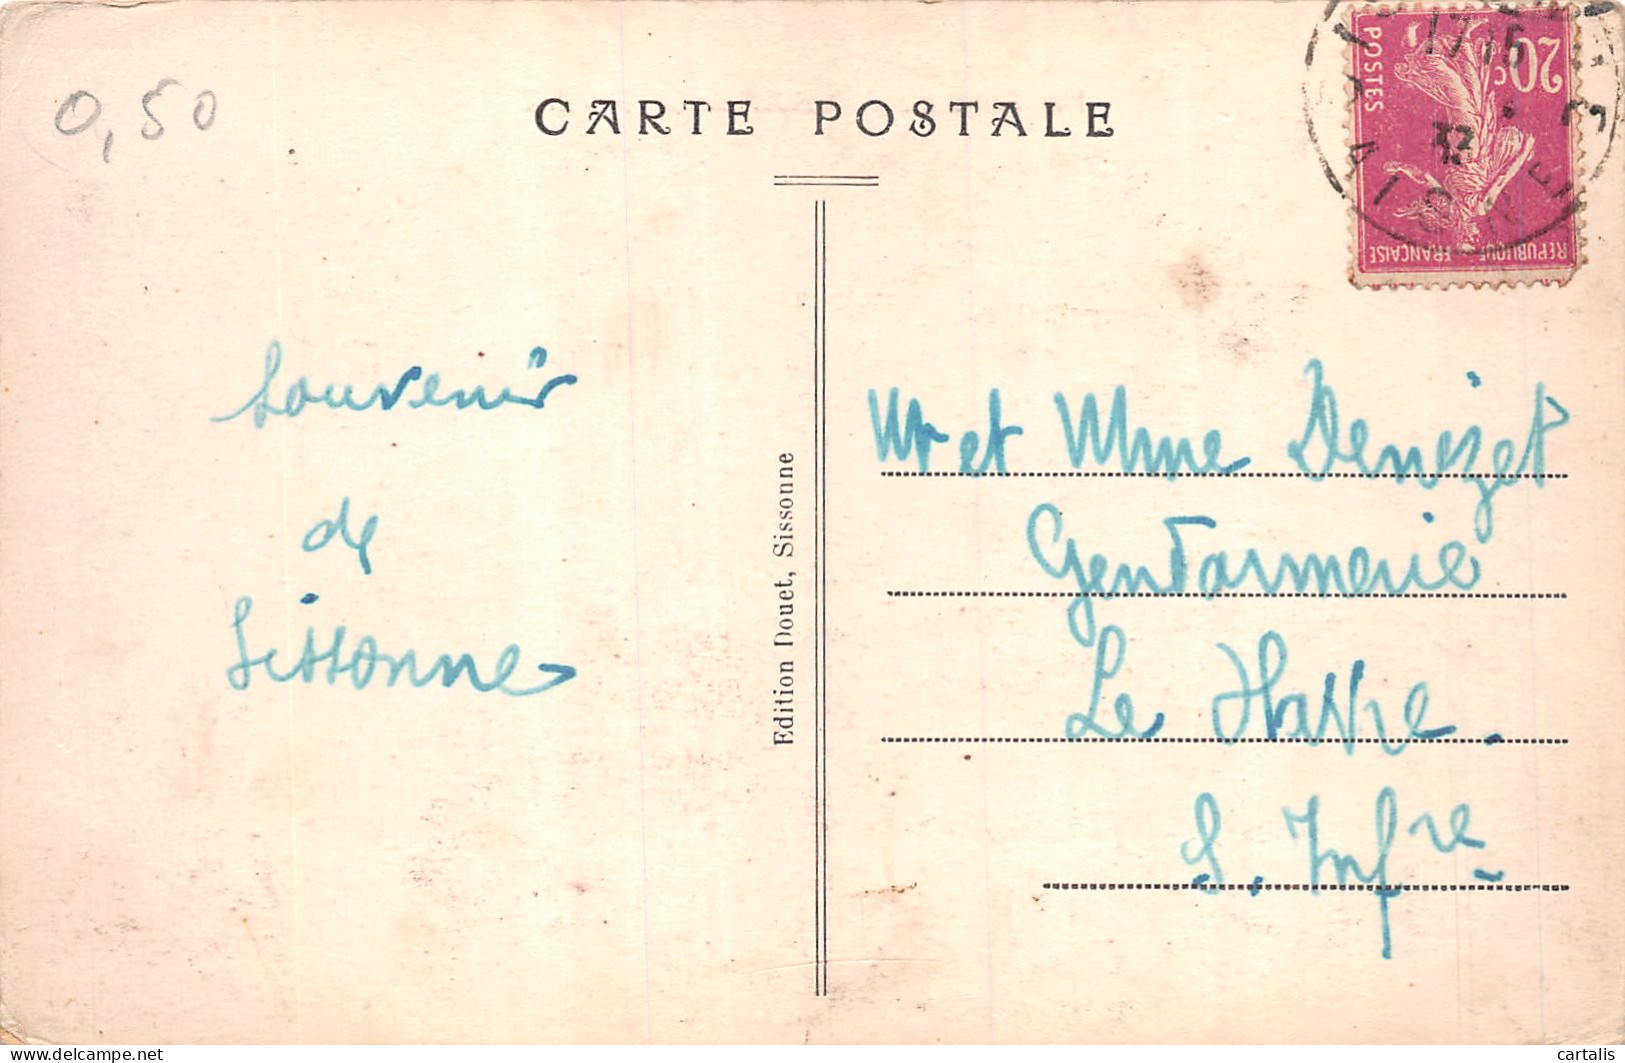 0,50
CARTE POSTALE
POSTES
20c
REPUBLIQUE FRANÇAISE
17 15
32
souvenir
de
Sissonne
Edition Douet, Sissonne
Mr et Mme Denizet
Gendarmerie
Le Havre.
S. Infre
delcampe.net
cartalis